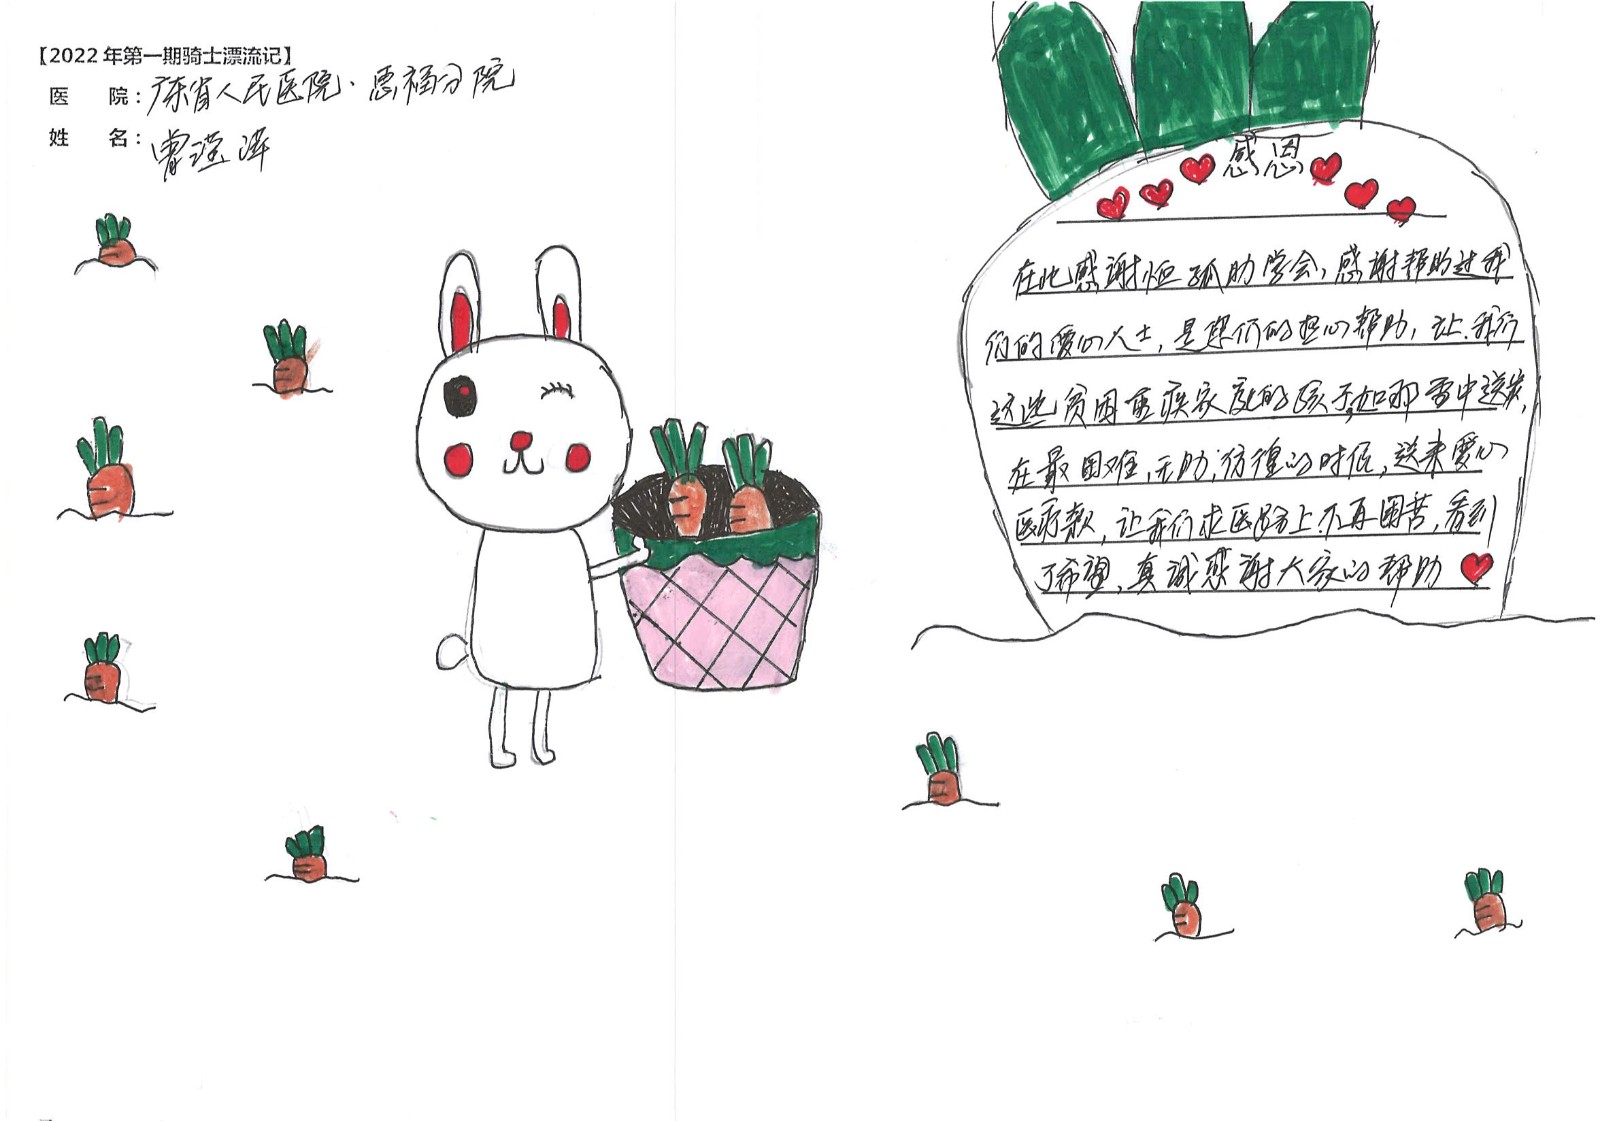 【2022年第一期骑士漂流记】
医 院：广东省人民医院·惠福分院
姓 名：曾滢泽
感恩
在此感谢恤孤助学会，感谢帮助过我
们的爱心人士，是您们的热心帮助，让我们
这些贫困重疾家庭的孩子如那雪中送炭，
在最困难，无助，彷徨的时候，送来爱心
医疗款，让我们求医路上不再困苦，看到
了希望，真诚感谢大家的帮助